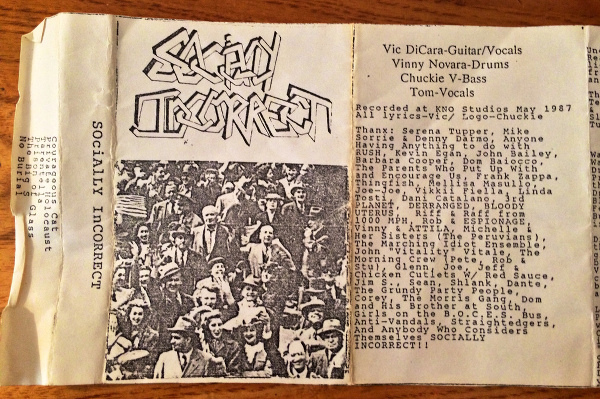 Courageous Cat
Holocaust
Prison of Glass
The Big S
No Burial
SOCiALLY INCORRECT
SOCIALLY
INCORRECT
Vic DiCara-Guitar/Vocals
Vinny Novara-Drums
Chuckie V-Bass
Tom-Vocals
Recorded at KNO Studios May 1987
All lyrics-Vic/ Logo-Chuckie
Thanx: Serena Tupper, Mike
Sorrie & Denny Darmo, Anyone
Having Anything to do with
RUSH, Kevin Egan, John Bailey,
Barbara Cooper, Don Baiocco,
The Parents Who Put Up With
and Encourage Us, Frank Zappa,
Thingfish, Mellisa Masullo,
Joe-Joe, Vikki Pilla, Linda
Tosto, Dani Catalano, 3rd
PLANET, DERRANGED, BLOODY
UTERUS , Riff & Raff from
1000 MPH, Rob & ESPIONAGE,
Vinny & ATTILA, Michelle &
Her Sisters (The Peruvians),
The Marching Idiot Ensemble,
John "Vitality" Vitale, The
Morning Crew (Pete, Rob &
Stu), Glenn, Joe, Jeff &
Chicken Cutlets W/ Red Sauce,
Jim S., Sean, Shlank, Dante,
The Grundy Party People,
Corey, The Morris Gang, Dom
and His Brother AC South,
Girls on the B.O.C.E.S. Bus,
Anti-Vandals, Straightedgers,
And Anybody Who Considers
Themselves SOCIALLY
INCORRECT!!